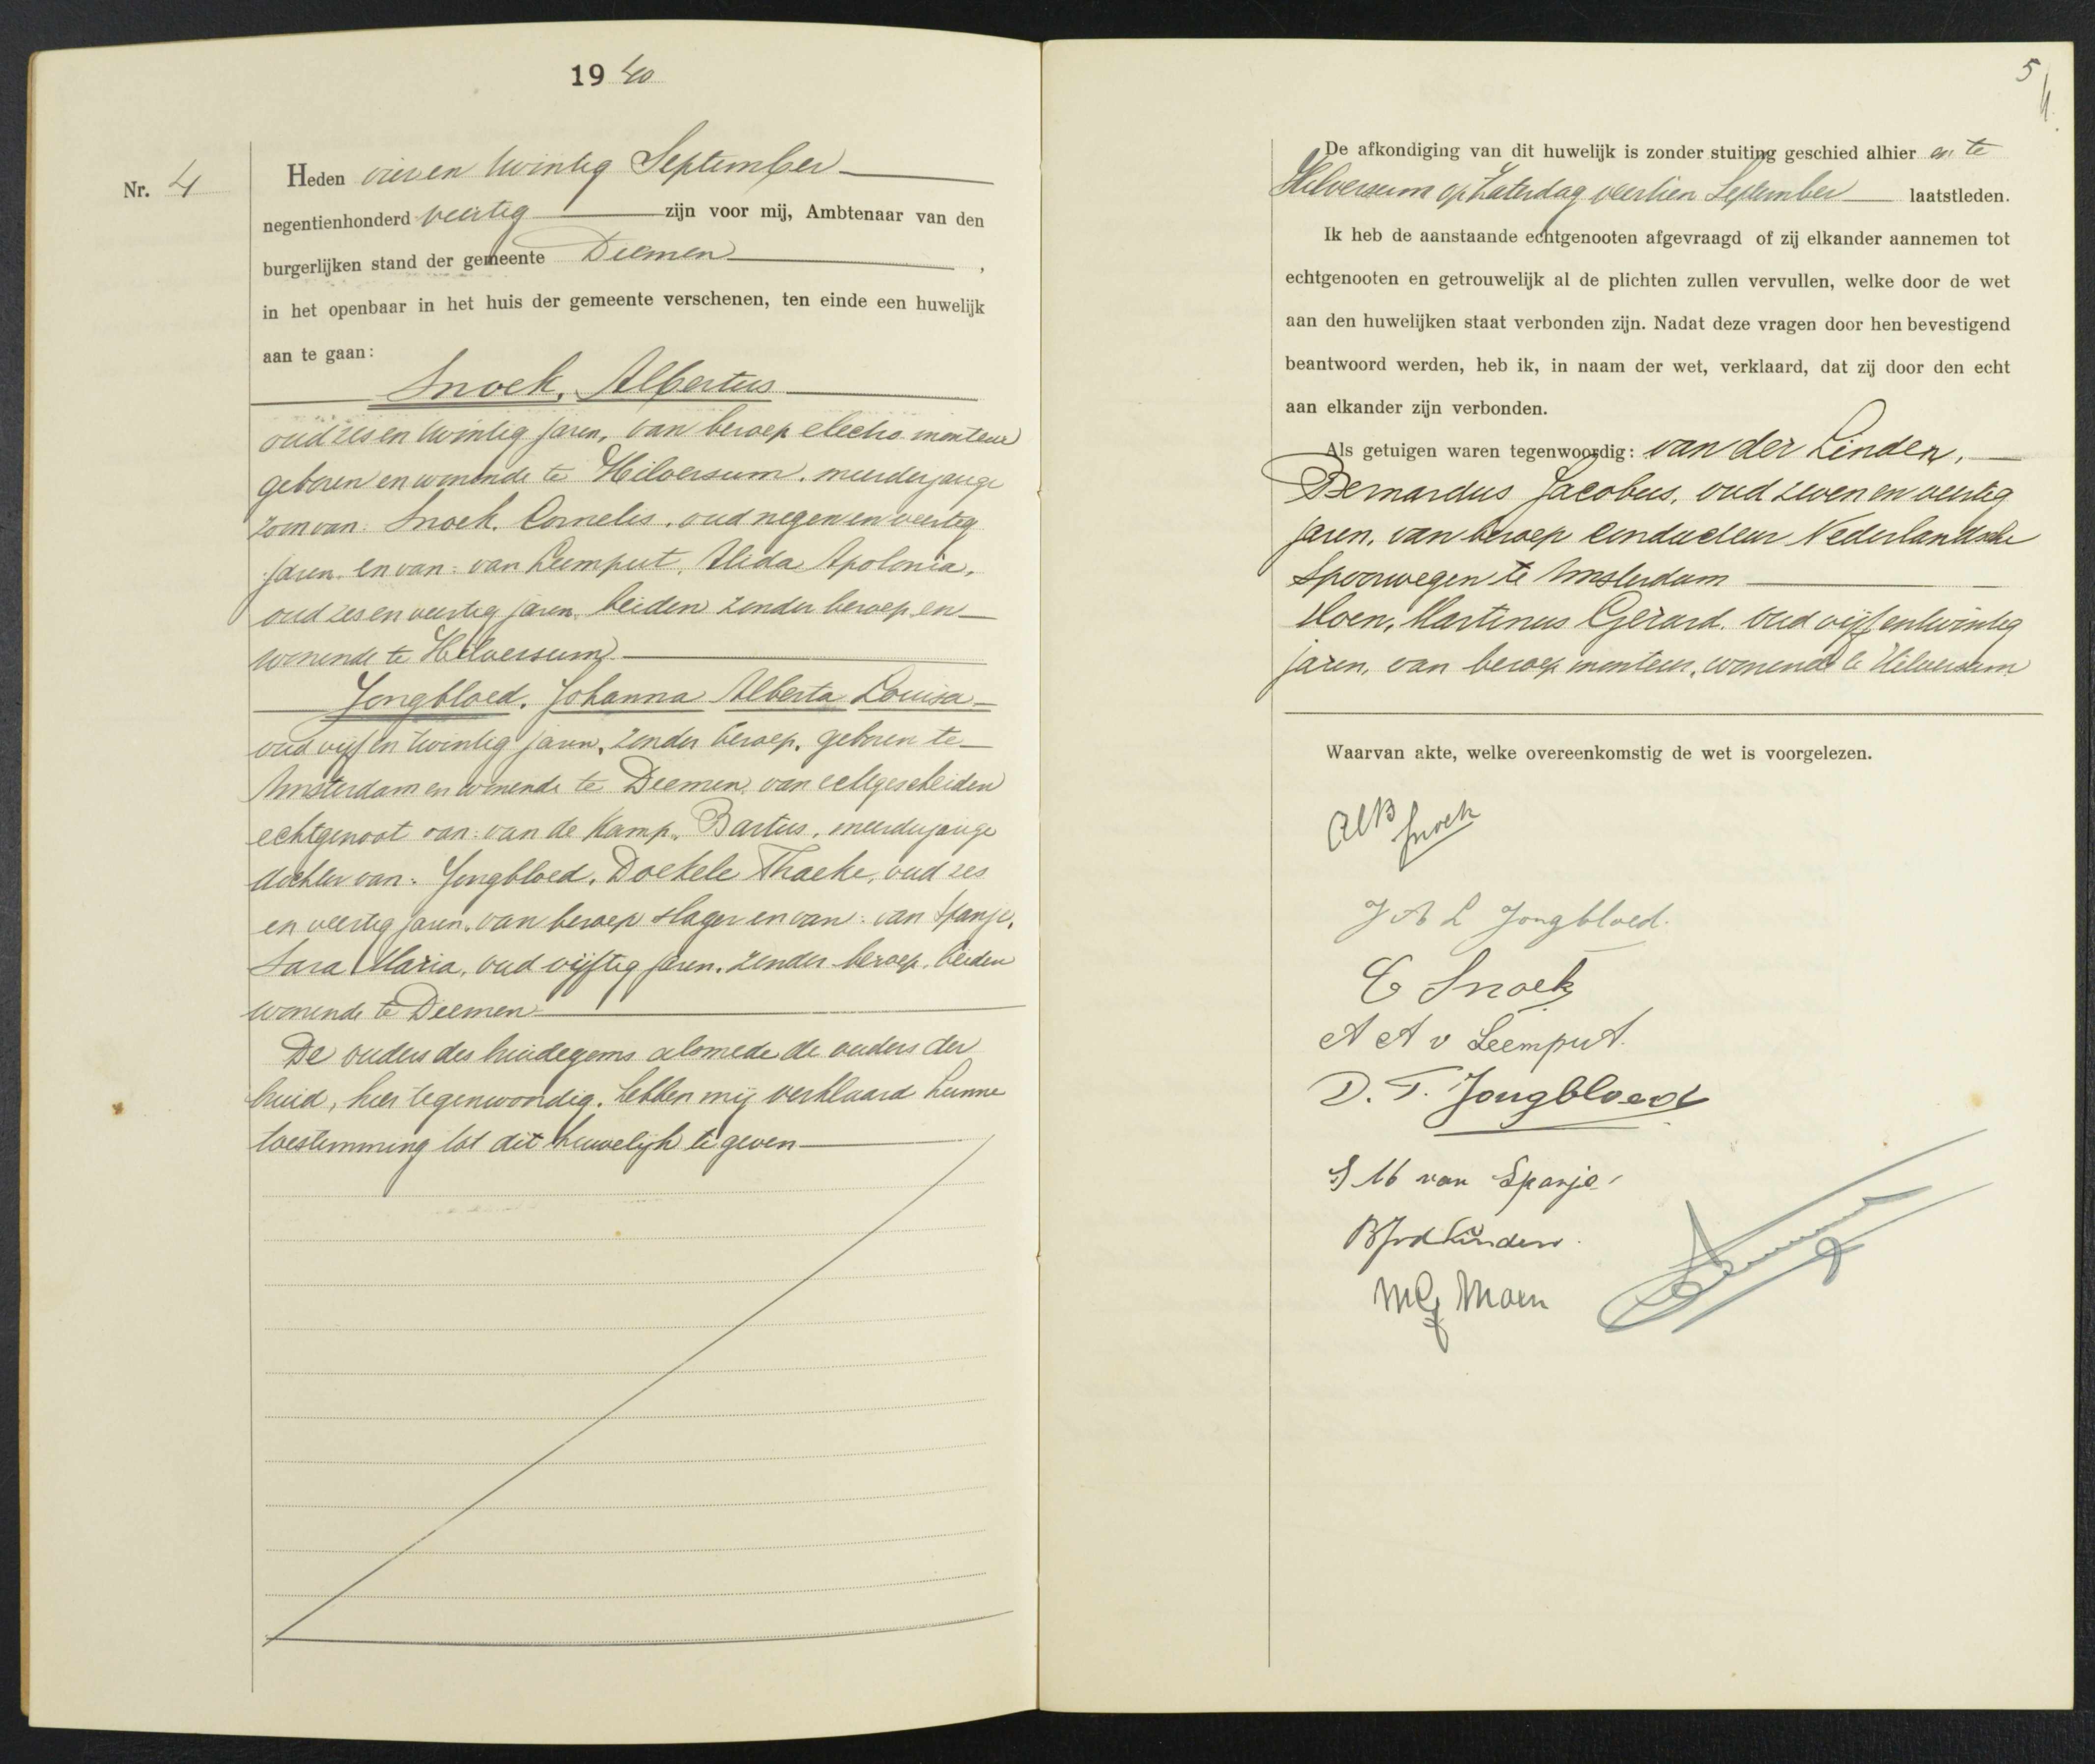 1940
Nr. 4
Heden vier en twintig September
negentienhonderd veertig zijn voor mij, Ambtenaar van den
burgerlijken stand der gemeente Diemen,
in het openbaar in het huis der gemeente verschenen, ten einde een huwelijk
aan te gaan:
Snoek, Albertus
oud zes en twintig jaren, van beroep electro monteur
geboren en wonende te Hilversum, meerderjarige
zoon van: Snoek, Cornelis, oud negen en veertig
jaren en van: van Leemput, Alida Apolonia,
oud zes en veertig jaren, beiden zonder beroep en
wonende te Hilversum
Jongbloed, Johanna Alberta Louisa
oud vijf en twintig jaren, zonder beroep, geboren te
Amsterdam en wonende te Diemen, van echtgescheiden
echtgenoot van: van de Kamp, Bartus, meerderjarige
dochter van: Jongbloed, Doekele Thaeke, oud zes
en veertig jaren, van beroep slager en van: van Spanje,
Sara Maria, oud vijftig jaren, zonder beroep, beiden
wonende te Diemen
De ouders des bruidegoms alsmede de ouders der
bruid, hier tegenwoordig, hebben mij verklaard hunne
toestemming tot dit huwelijk te geven
5
4.
De afkondiging van dit huwelijk is zonder stuiting geschied alhier en te
Hilversum op Zaterdag veertien September laatstleden.
Ik heb de aanstaande echtgenooten afgevraagd of zij elkander aannemen tot
echtgenooten en getrouwelijk al de plichten zullen vervullen, welke door de wet
aan den huwelijken staat verbonden zijn. Nadat deze vragen door hen bevestigend
beantwoord werden, heb ik, in naam der wet, verklaard, dat zij door den echt
aan elkander zijn verbonden.
Als getuigen waren tegenwoordig: van der Linden,
Bernardus Jacobus, oud zeven en veertig
jaren, van beroep conducteur Nederlandsche
Spoorwegen te Amsterdam
Moen, Martinus Gerard, oud vijf en twintig
jaren, van beroep monteur, wonende te Hilversum
Waarvan akte, welke overeenkomstig de wet is voorgelezen.
Alb Snoek
J A L Jongbloed.
C Snoek
A A v Leemput.
D. T. Jongbloed
S M van Spanje
B J v d Linden.
M G Moen